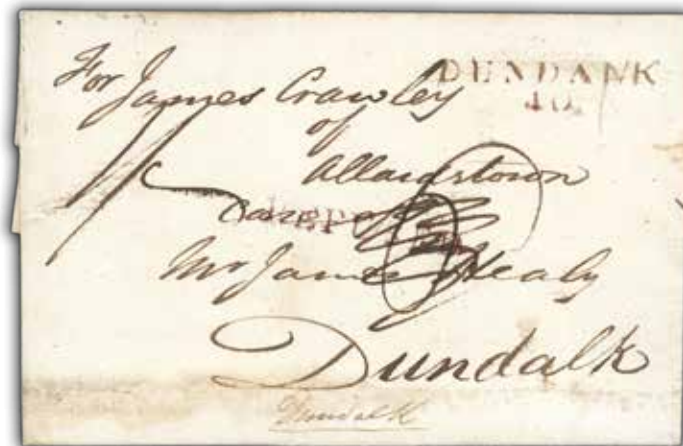 For James Crawley
DUNDANK
40
of
Allardstown
Care of
Mr James Healy
Dundalk
Dundalk